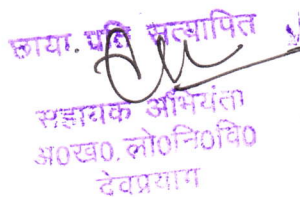 छाया. प्रति सत्यापित
सहायक अभियंता
अ०ख०. लो०नि०वि०
देवप्रयाग